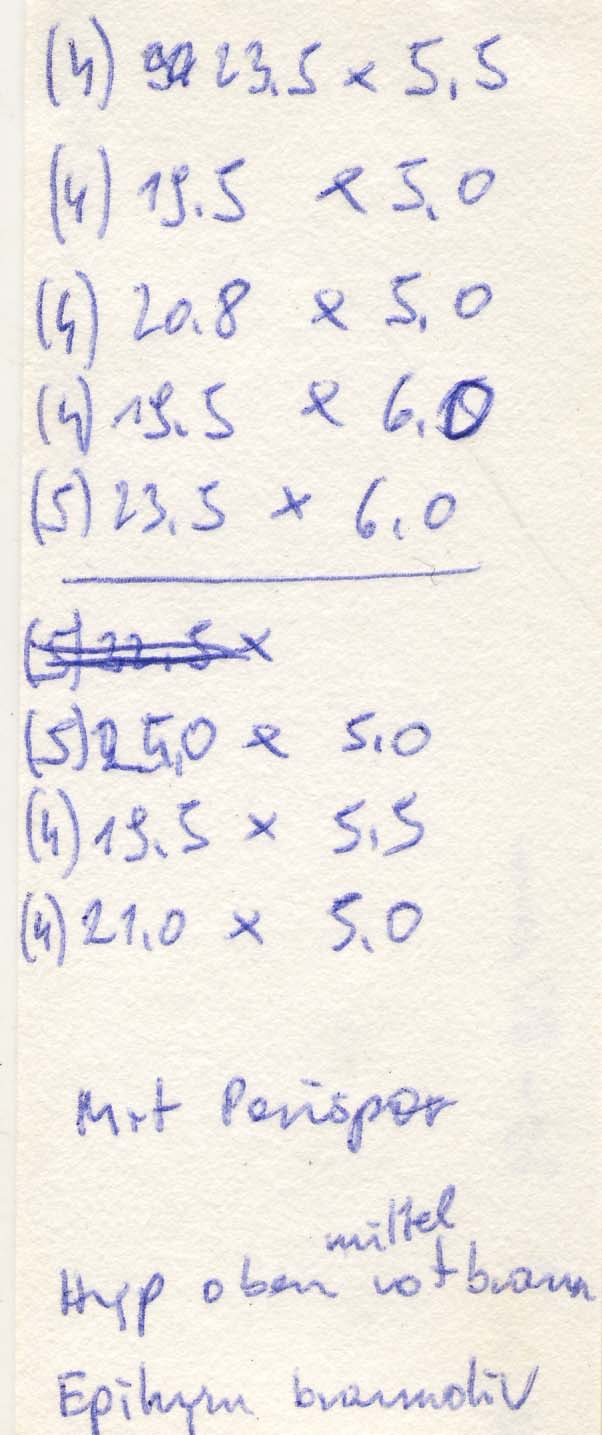 (4) 23.5 × 5.5
(4) 19.5 × 5.0
(4) 20.8 × 5.0
(4) 19.5 × 6.0
(5) 23.5 × 6.0
(5) 22.5 ×
(5) 25.0 × 5.0
(4) 19.5 × 5.5
(4) 21.0 × 5.0
Mit Perispor
mittel
Hyp oben rotbraun
Epihym braunoliv